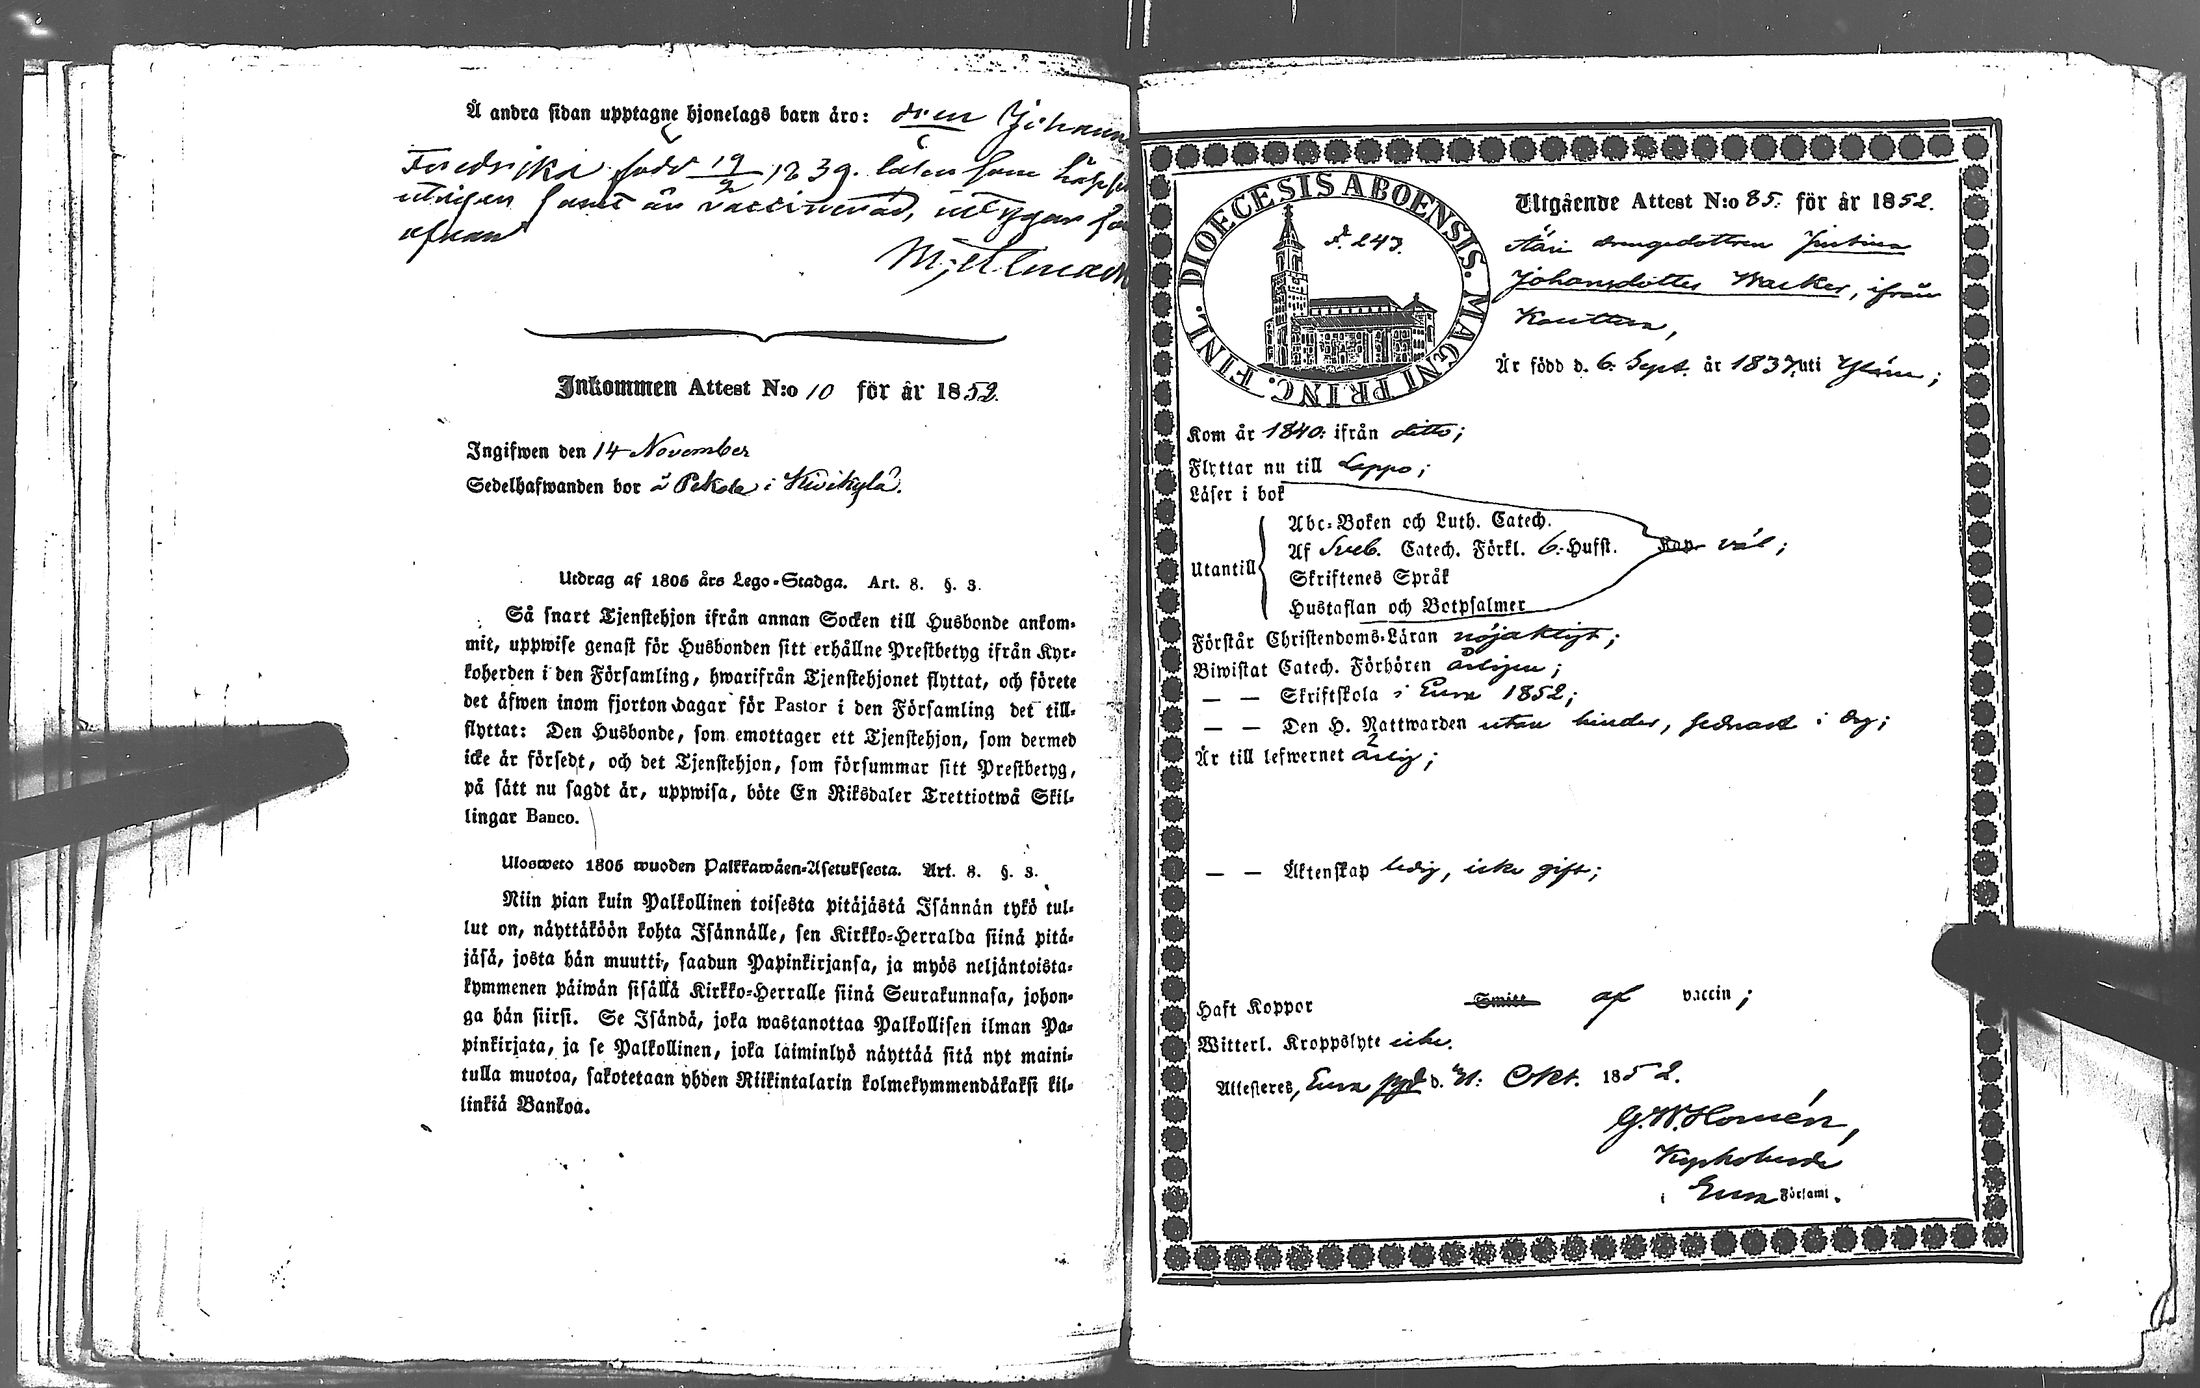 Å andra sidan upptagne hjonelags barn äro: den Johanna
Fredrika född 19/2 1839. läser som
utrigen samt är vaccinerad,
ofvan
Inkommen Attest N:o 10 för år 1852.
Ingifwen den 14 November
Sedelhafwanden bor å Pekola i Kiwikylä.
Utdrag af 1805 års Lego-Stadga. Art. 8. §. 3.
Så snart Tjenstehjon ifrån annan Socken till Husbonde ankom-
mit, uppwise genast för Husbonden sitt erhållne Prestbetyg ifrån Kyr-
koherden i den Församling, hwarifrån Tjenstehjonet flyttat, och förete
det äfwen inom fjorton dagar för Pastor i den Församling det till-
flyttat: Den Husbonde, som emottager ett Tjenstehjon, som dermed
icke är försedt, och det Tjenstehjon, som försummar sitt Prestbetyg,
på sätt nu sagdt är, uppwisa, böte En Riksdaler Trettiotwå Skil-
lingar Banco.
Ulosweto 1805 wuoden Palkkawäen-Asetuksesta. Art. 8. §. 3.
Niin pian kuin Palkollinen toisesta pitäjästä Isännän tykö tul-
lut on, näyttäköön kohta Isännälle, sen Kirkko-Herralda siinä pitä-
jäsä, josta hän muutti, saadun Papinkirjansa, ja myös neljäntoista-
kymmenen päiwän sisällä Kirkko-Herralle siinä Seurakunnasa, johon-
ga hän siirsi. Se Isändä, joka wastanottaa Palkollisen ilman Pa-
pinkirjata, ja se Palkollinen, joka laiminlyö näyttää sitä nyt maini-
tulla muotoa, sakotetaan yhden Riikintalarin kolmekymmendäkaksi kil-
linkiä Bankoa.
DIOECESIS ABOENSIS. MAGNI PRINC. FINL.
P. 243.
Utgående Attest N:o 85. för år 1852.
drängedottren Justina
Johansdotter Wacker, ifrån
Kauttua,
Är född d. 6. Sept. år 1837. uti Yläne;
Kom år 1840: ifrån ditto;
Flyttar nu till Lappo;
Läser i bok
Utantill
Abc-Boken och Luth. Catech.
Af Sveb. Catech. Förkl. 6. Hufst. Kap väl;
Skriftenes Språk
Hustaflan och Botpsalmer
Förstår Christendoms-Läran nöjaktigt;
Biwistat Catech. Förhören årligen;
— — Skriftskola i Eura 1852;
— — Den H. Nattwarden utan hinder, sednast i dag;
Är till lefwernet ärlig;
— — Äktenskap ledig, icke gift;
Haft Koppor Smitt af vaccin;
Witterl. Kroppslyte icke.
Attesteres, Eura pgd d. 31. Okt. 1852.
G.W. Homén,
Kyrkoherde
i Eura Förtaml.